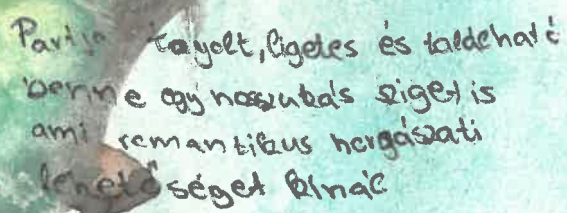 Partja tagolt, ligetes és található
benne egy hosszukás sziget is
ami romantikus horgászati
lehetőséget kínál